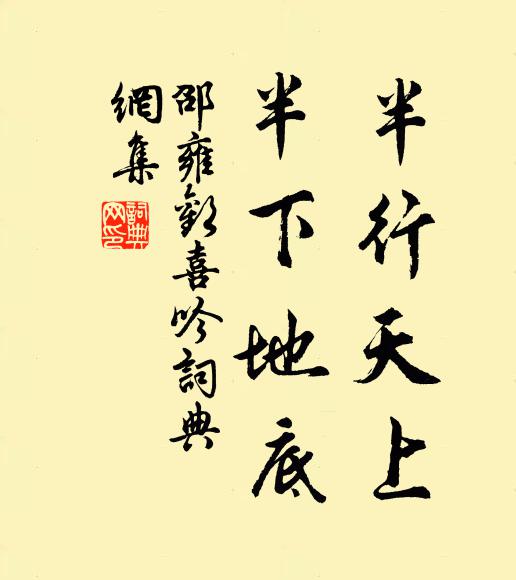 半行天上
半下地底
邵雍歡喜吟詞典
網集
詞典
网印